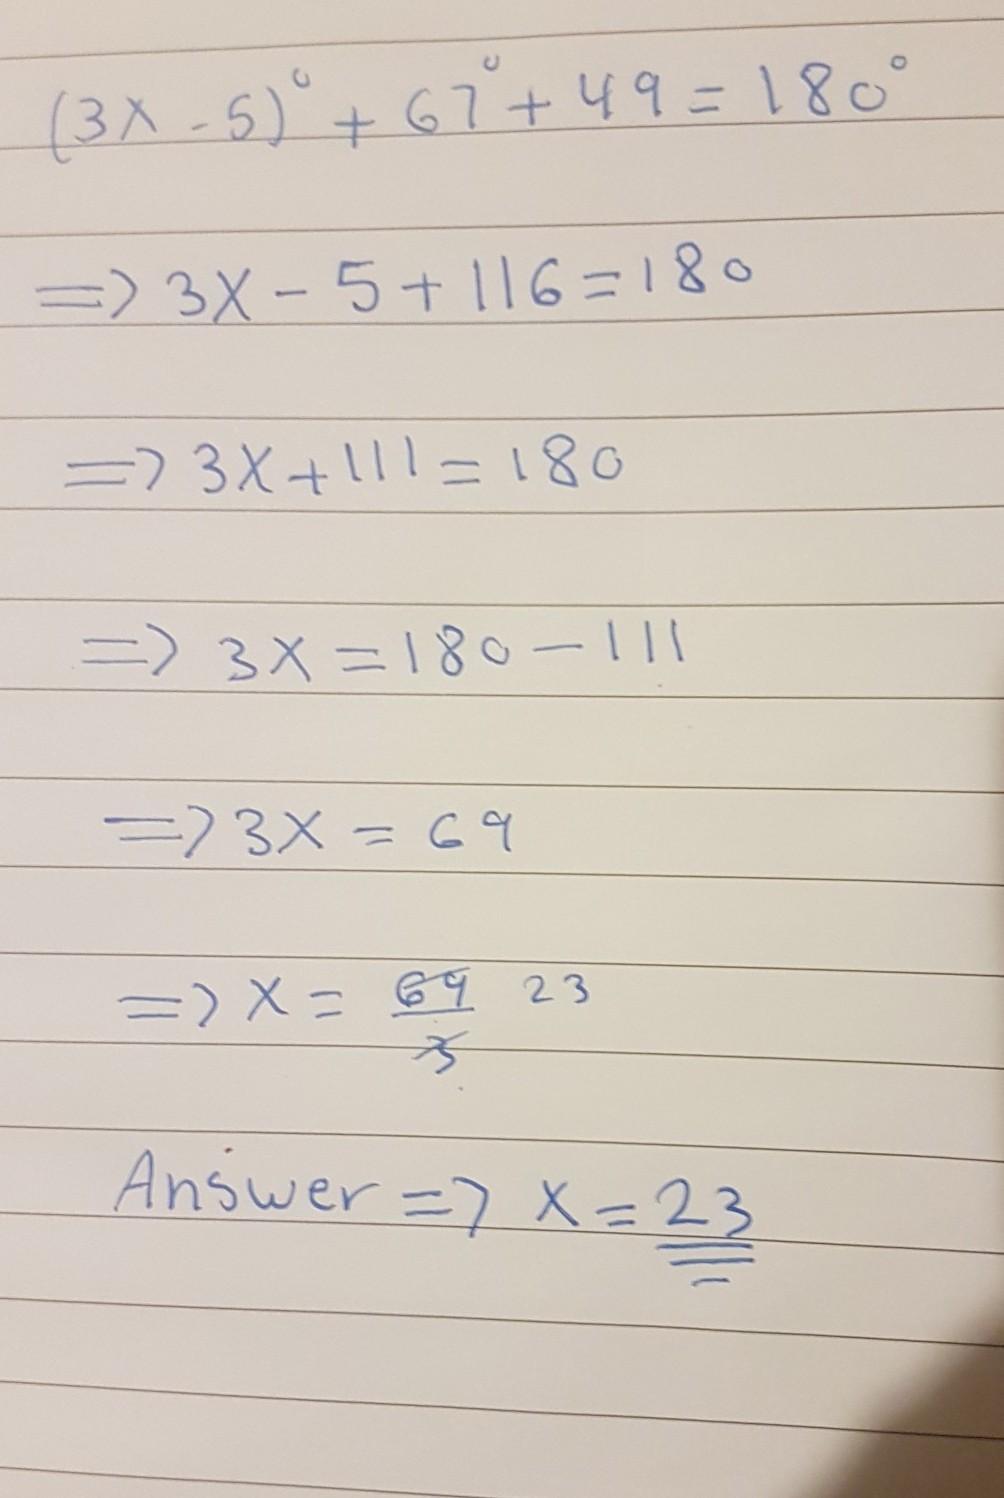 (3x - 5)° + 67° + 49 = 180°
=> 3x - 5 + 116 = 180
=> 3x + 111 = 180
=> 3x = 180 - 111
=> 3x = 69
=> x = 69/3 23
Answer => x = 23